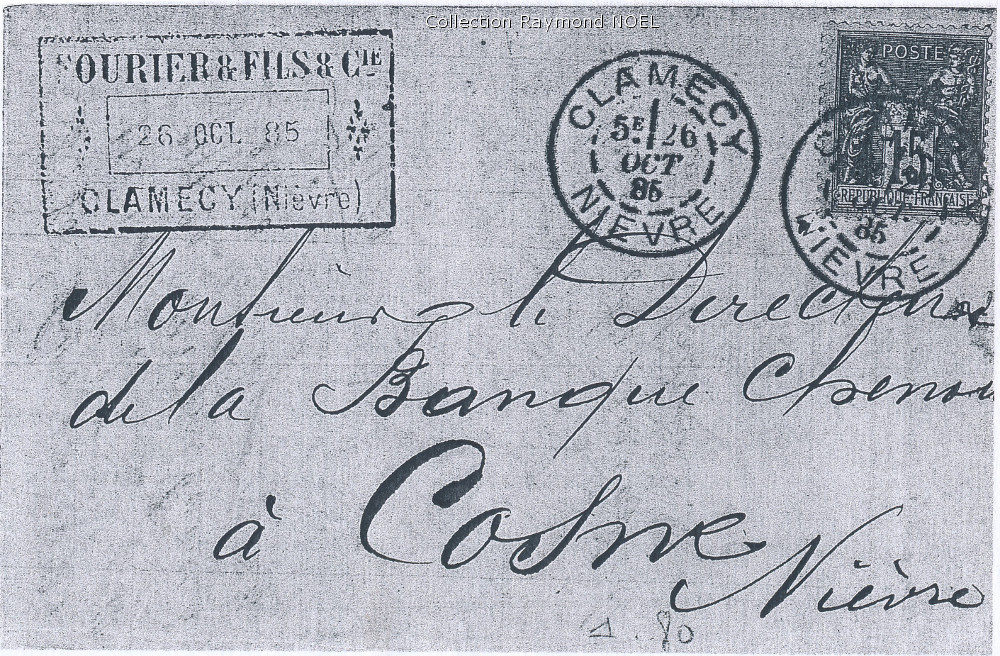 Collection Raymond NOEL
FOURIER & FILS & CIE
26 OCT. 85
CLAMECY (Nièvre)
CLAMECY
5E 26
OCT
85
NIEVRE
POSTE
15
REPUBLIQUE FRANCAISE
85
NIEVRE
Monsieur le Directeur
de la Banque
à Cosne
Nièvre